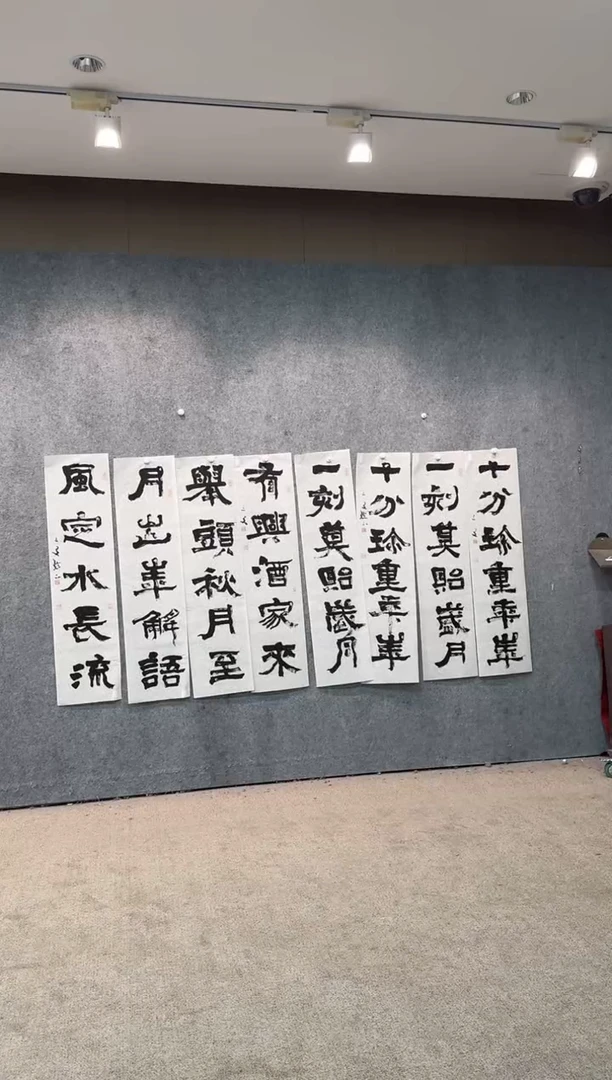 十分珍重年華
一刻莫貽歲月
十分珍重年華
一刻莫貽歲月
有興酒家來
舉頭秋月至
月出華解語
風定水長流